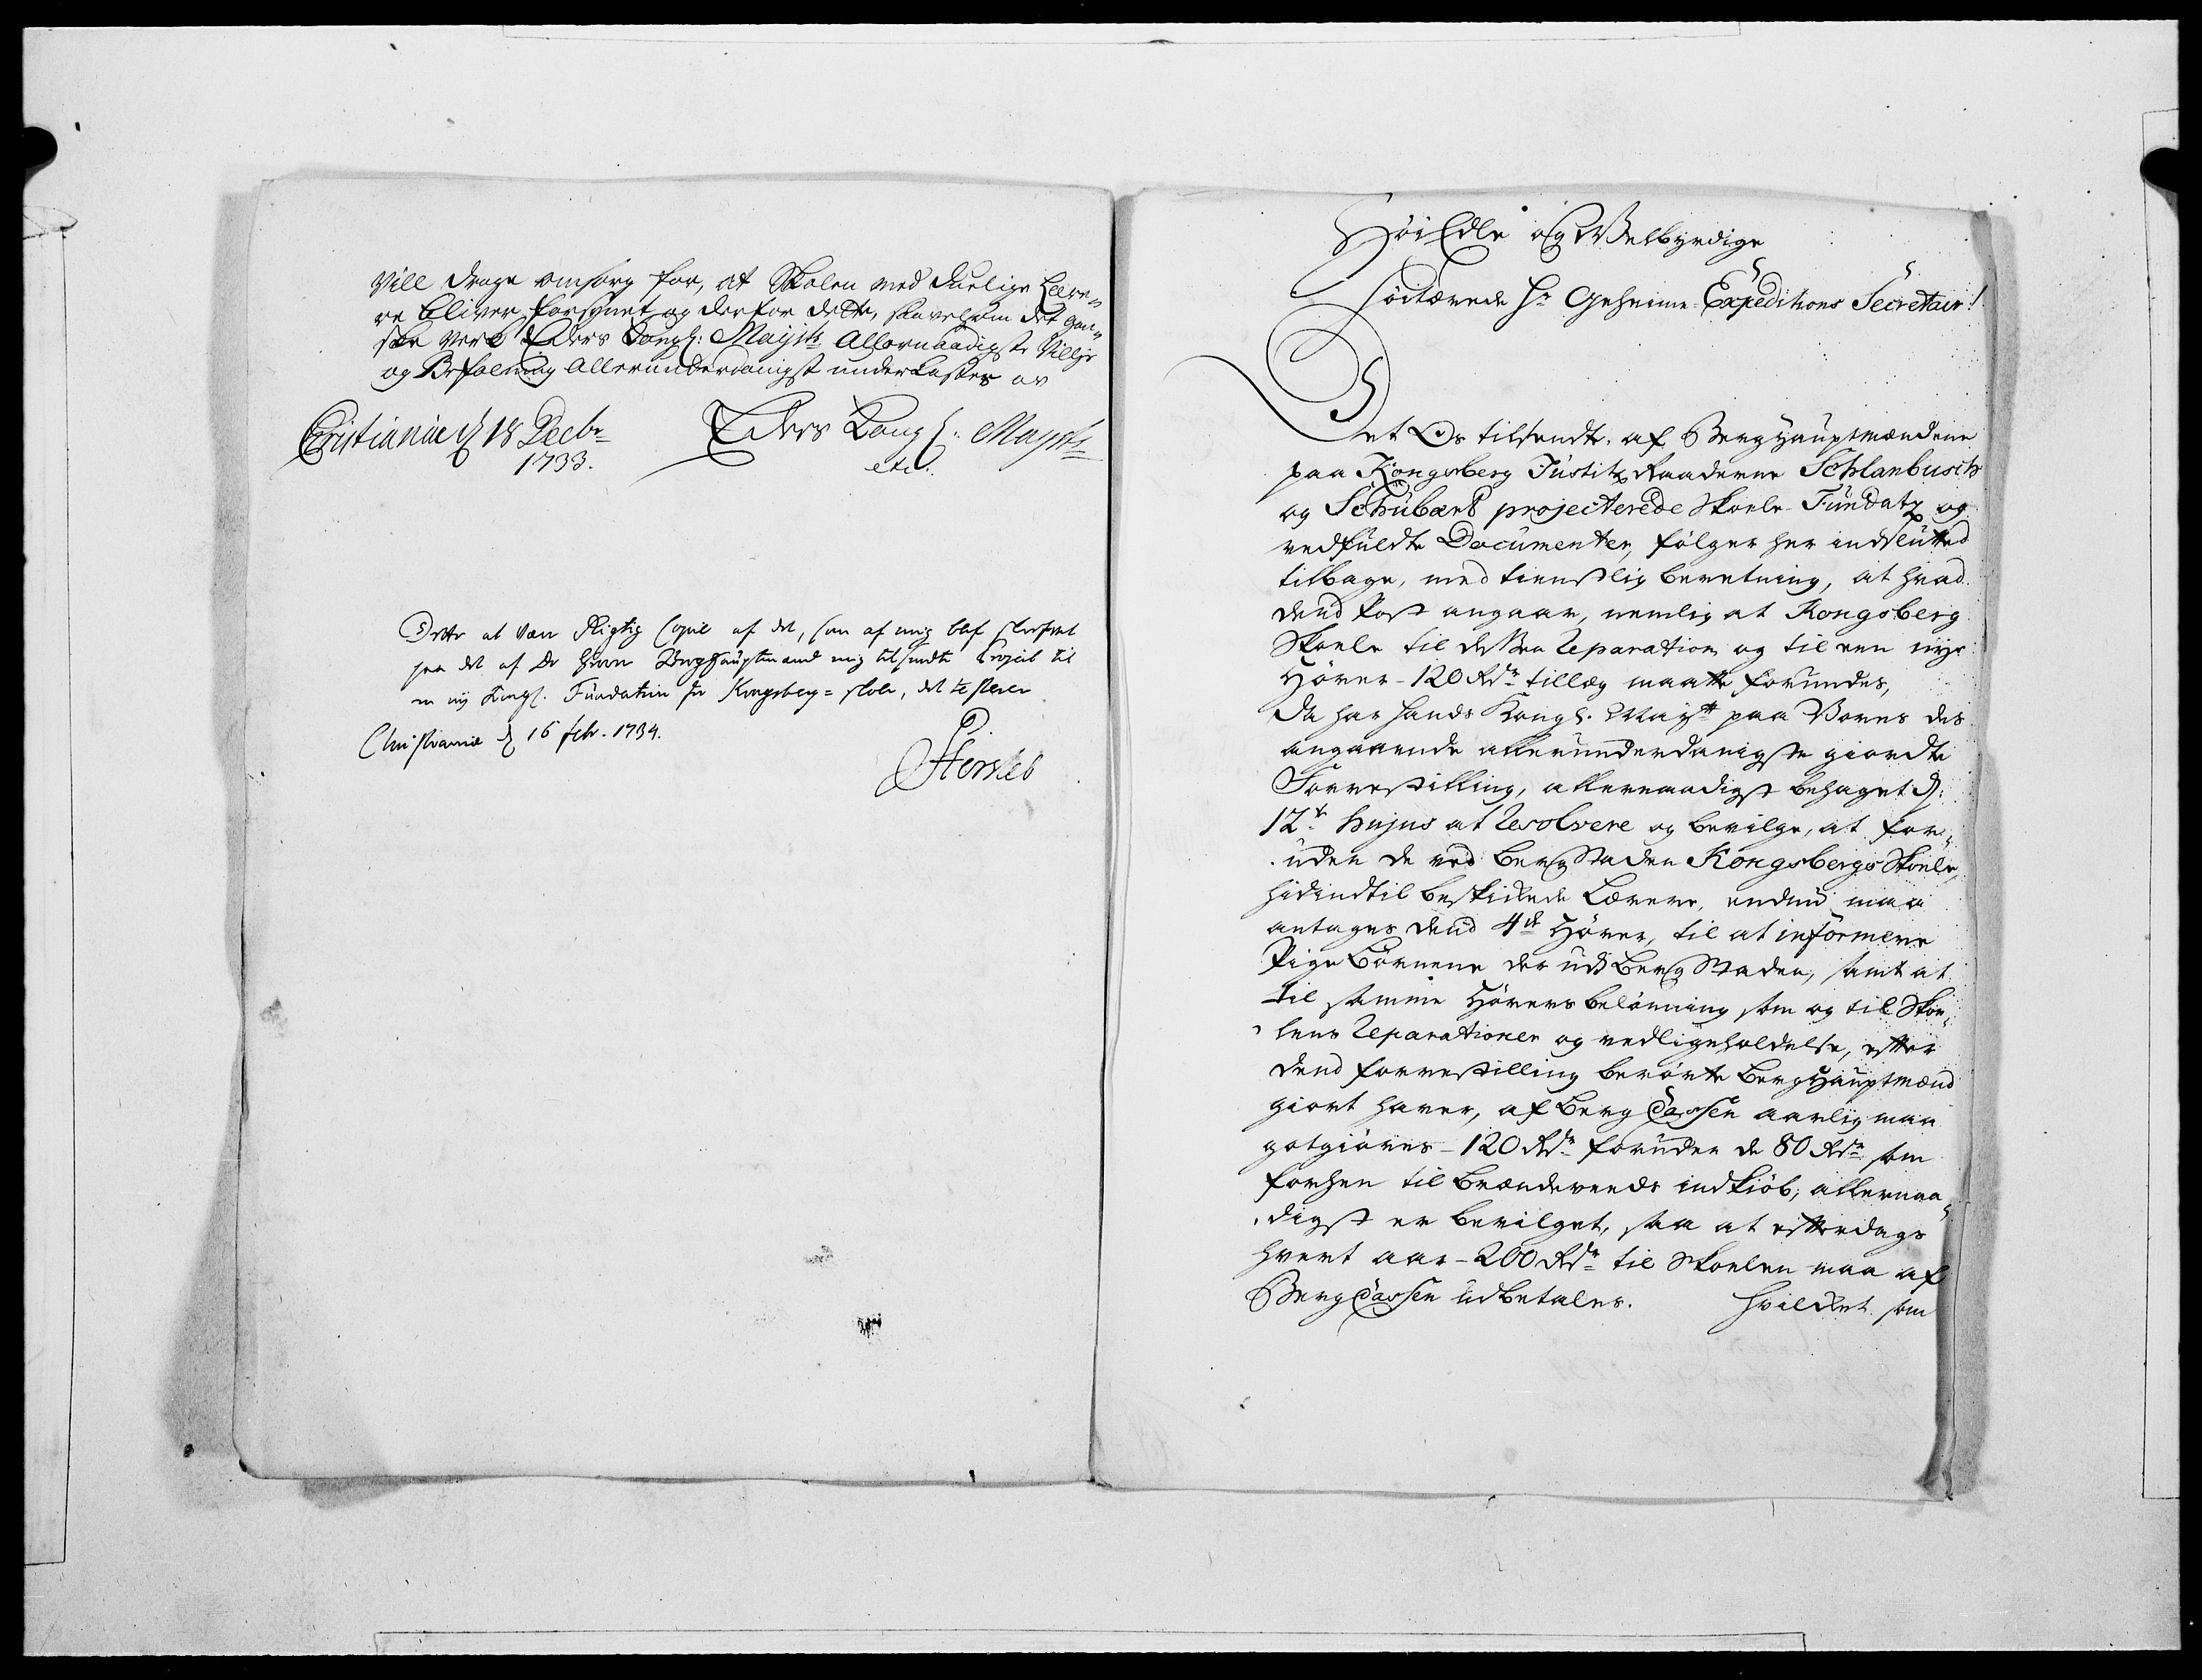 Vill drage omsorg for, at Skolen med duelige Lære„
re bliver forsynet og derfor dette, saavelsom det gan„
ske Verk Eders Kongl: Mayts Allernaadigste Villje
og Befalning Allerunderdanigst underkastes av
Christiania d 18 Decbr
1733.
Eders Kongl: Mayts
etc:
Dette at være Rigtig Copie af det, som af mig blef skrevet
paa det af de Herrer Berghauptmænd mig tilsendte Project til
en ny Kongl. Fundation for Kongsberg=skole, det testerer
Christiania d 16 febr. 1734.
P. Hersleb
Høi Edle og Velbyrdige
Høitærede Hr Geheime-Expeditions Secretair!
Det Os tilsendte, af BergHauptmændene
paa Kongsberg Justitz Raaderne Schlanbusch
og Schubært projecterede Skoele-Fundatz og
vedfuldte Documenter, følger her indslutted
tilbage, med tienstlig beretning, at hvad
dend Post angaar, nemlig at Kongsberg
Skoele til dessen Reparation og til een nye
Hører - 120 Rdr tillæg maatte forundes,
da har Hands Kongl. Mayt paa Vores des
angaaende allerunderdanigste giordte
Forrestilling, allernaadigst behaget d:
12te hujus at Resolvere og bevilge, at for„
uden de ved BergStaden Kongsbergs Skoele
hidindtil beskikkede Lærere, endnu maa
antages dend 4de Hører, til at informere
PigeBørnene der udi BergStaden, samt at
til samme Hørers belønning som og til Skoe„
lens Reparationer og vedligeholdelse, efter
dend forrestilling berørte BergHauptmænd
giort haver, af Berg Cassen aarlig maa
gotgiøres - 120 Rdr foruden de 80 Rdr som
forhen til Brændeveeds indkiøb, allernaa„
digst er bevilget, saa at efterdags
hvert aar - 200 Rdr til Skoelen maa af
Berg Cassen udbetales. Hvilket som